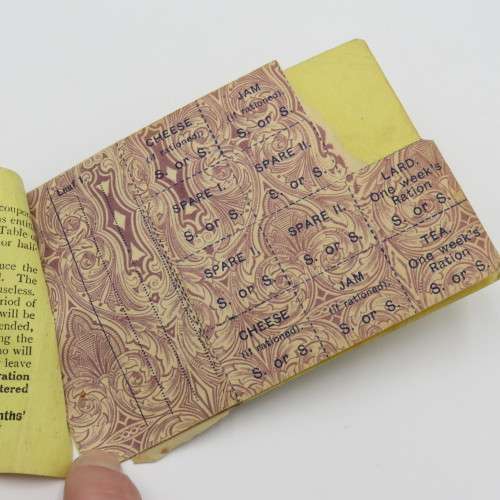 coupon
s enti
Table
or half
nce the
d. The
useless.
eriod of
will be
ended,
ng the
ho will
y leave
ration
tered
nths'
Leaf
CHEESE
(if rationed).
S. or S.
JAM
(if rationed).
S. or S.
SPARE I.
S. or S.
SPARE II.
S. or S.
LARD,
One week's
Ration
S. or S.
SPARE I.
S. or S.
SPARE II.
S. or S.
TEA
One week's
Ration
S. or S.
CHEESE
(if rationed).
S. or S.
JAM
(if rationed).
S. or S.